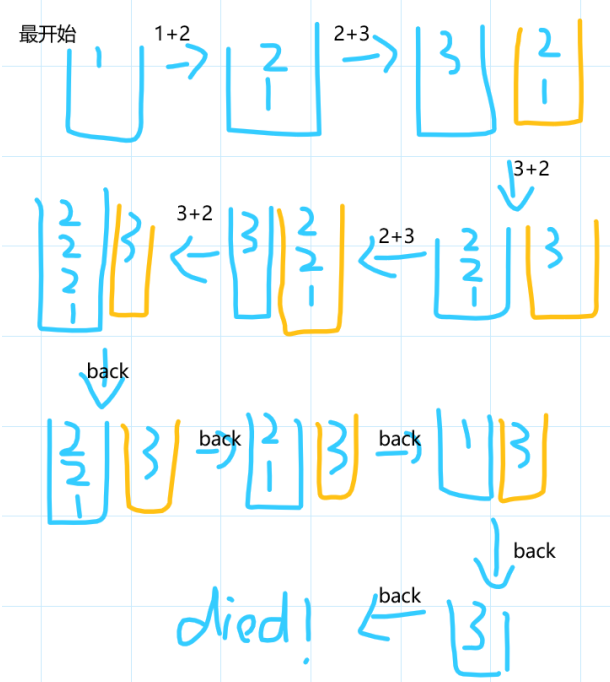 最开始 1 1+2 2 1 2+3 3 2 1
3+2
2 2 2 1 3 3+2 3 2 2 1 2+3 2 2 1 3
back
2 2 1 3 back 2 1 3 back 1 3
back
died! back 3